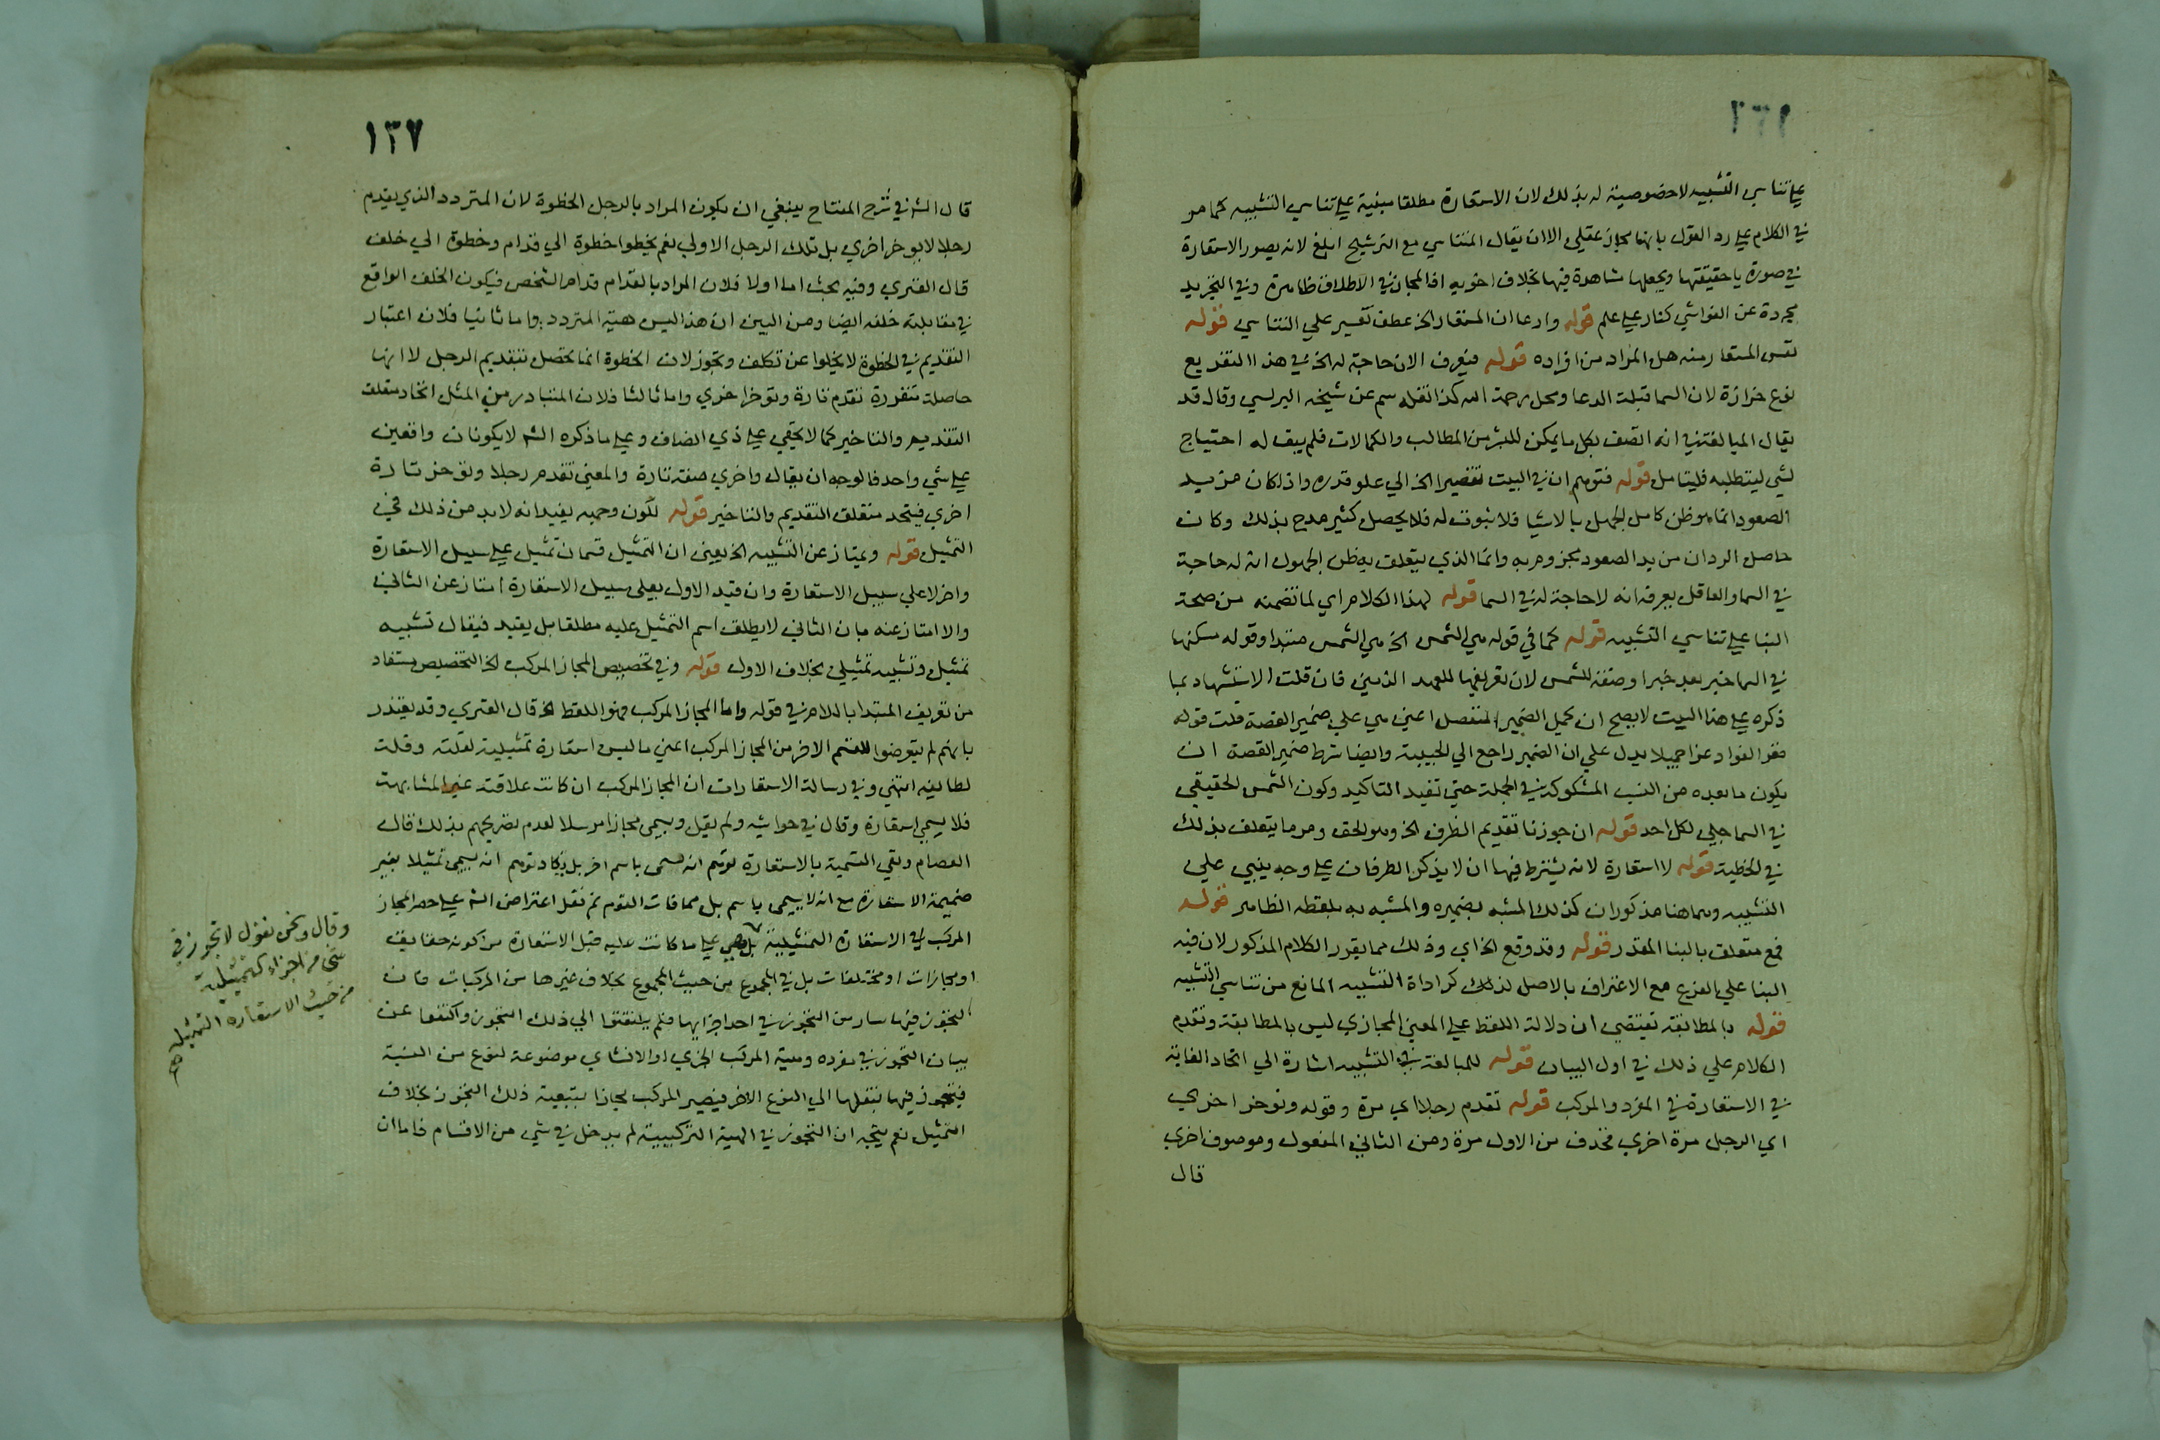 ١٣٦
علي تناسي التشبيه لا خصوصية له بذلك لان الاستعارة مطلقا مبنية علي تناسي التشبيه كما مر
في الكلام علي رد القول بانها مجاز عقلي الا ان يقال التناسي مع الترشيح ابلغ لانه يصور الاستعارة
في صورة يا حقيقتها ويجعلها شاهدة فيها بخلاف اخويه اذ المجاز في الاطلاق ظاهرة وفي التجريد
مجردة عن الغواشي كنار علي علم قوله وادعا ان المستعار الخ عطف تفسير علي التناسي قوله
نفس المستعار منه هل المراد من افراده قوله فيعرف الان حاجة له الخ في هذا التفريع
نوع حزازة لان السما قبلة الدعا ومحل رحمة الله كذا نقله سم عن شيخه البرلسي وقال قد
يقال المبالغة في انه اتصف بكل ما يمكن للبشر من المطالب والكمالات فلم يبق له احتياج
لشي ليتطلبه فليتامل قوله فتوهم ان في البيت تقصيرا الخ الي علو قدره واذا كان مزيد
الصعود انما هو ظن كامل الجهل بالاشيا فلا ثبوت له فلا يحصل كثير مدح بذلك وكان
حاصل الرد ان مزيد الصعود مجزوم به وانما الذي يتعلق به ظن الجهول ان له حاجة
في السما والعاقل يعرف انه لا حاجة له في السما قوله لهذا الكلام اي لما تضمنه من صحة
البنا علي تناسي التشبيه قوله كما في قوله هي الشمس الخ هي الشمس مبتدا وقوله مسكنها
في السما خبر بعد خبر او صفة للشمس لان تعريفها للعهد الذهني فان قلت الاستشهاد بما
ذكره علي هذا البيت لا يصح ان يحمل الضمير المنفصل اعني هي علي ضمير القصة قلت قوله
فعز الفواد عزا جميلا يدل علي ان الضمير راجع الي الحبيبة وايضا شرط ضمير القصة ان
يكون ما بعده من النسب المشكوكة في الجملة حتي تفيد التاكيد وكون الشمس الحقيقي
في السما جلي لكل احد قوله ان جوزنا تقديم الظرف الخ وهو الحق ومر ما يتعلق بذلك
في الخطبة قوله لا استعارة لانه يشترط فيها ان لا يذكر الطرفان علي وجه ينبي علي
التشبيه وهما هنا مذكوران كذلك المشبه بضميره والمشبه به بلفظه الظاهر قوله
فمع متعلق بالبنا المقدر قوله وقد وقع الخ اي وذلك مما يقرر الكلام المذكور لان فيه
البنا علي الفرع مع الاعتراف بالاصل لذلك كر اداة التشبيه المانع من تناسي التشبيه
قوله بالمطابقة تقتضي ان دلالة اللفظ علي المعني المجازي ليس بالمطابقة وتقدم
الكلام علي ذلك في اول البيان قوله للمبالغة في التشبيه اشارة الي اتحاد الغاية
في الاستعارة في المفرد والمركب قوله تقدم رجلا اي مرة وقوله وتوخر اخري
اي الرجل مرة اخري فحذف من الاول مرة ومن الثاني المفعول وموصوف اخري
قال
١٣٧
قال الش في شرح المفتاح ينبغي ان يكون المراد بالرجل الخطوة لان المتردد الذي يقدم
رجلا لا يوخر اخري بل تلك الرجل الاولي نعم يخطوا خطوة الي قدام وخطوة الي خلف
قال الفنري وفيه بحث اما اولا فلان المراد بالقدام قدام الشخص فيكون الخلف الواقع
في مقابلته خلفه ايضا ومن البين ان هذا ليس هيئة المتردد واما ثانيا فلان اعتبار
التقديم في الخطوة لا يخلوا عن تكلف وتجوز لان الخطوة انما تحصل بتقديم الرجل لا انها
حاصلة متقررة تقدم تارة وتوخر اخري واما ثالثا فلان المتبادر من المثل اتحاد متعلق
التقديم والتاخير كما لا يخفي علي ذي انصاف وعلي ما ذكره الش لا يكونان واقعين
علي شي واحد فالوجه ان يقال واخري صفة تارة والمعني تقدم رجلا وتوخر تارة
اخري فيتحد متعلق التقديم والتاخير قوله لكون وجهه يفيد انه لا بد من ذلك في
التمثيل قوله ويمتاز عن التشبيه الخ يعني ان التمثيل قسمان تمثيل علي سبيل الاستعارة
واخر لا علي سبيل الاستعارة وان قيد الاول بعلي سبيل الاستعارة امتاز عن الثاني
والا امتاز عنه بان الثاني لا يطلق اسم التمثيل عليه مطلقا بل يقيد فيقال تشبيه
تمثيل وتشبيه تمثيلي بخلاف الاول قوله وفي تخصيص المجاز المركب الخ التخصيص مستفاد
من تعريف المبتدا باللام في قوله واما المجاز المركب فهو اللفظ الخ قال الفنري وقد يعتذر
بانهم لم يتعرضوا للقسم الاخر من المجاز المركب اعني ما ليس استعارة تمثيلية لقلته وقلت
لطايفه انتهي وفي رسالة الاستعارات ان المجاز المركب ان كانت علاقته غير المشابهت
فلا يسمي استعارة وقال في حواشيه ولم يقل ويسمي مجازا مرسلا لعدم تصريحهم بذلك قال
العصام ونفي التسمية بالاستعارة توهم انه يسمي باسم اخر بل يكاد توهم انه يسمي تمثيلا بغير
ضميمة الاستعارة مع انه لا يسمي باسم بل مما فات القوم ثم نقل اعتراض الش علي حصر المجاز
المركب في الاستعارة التمثيلية بل هي علي ما كانت عليه قبل الاستعارة من كونه حقايق
او مجازات او مختلفات بل في المجموع من حيث المجموع بخلاف غيرها من المركبات فان
التجوز فيها سار من التجوز في احد اجزايها فلم يلتفتوا الي ذلك التجوز واكتفوا عن
بيان التجوز في مفرده وهيئة المركب الخبري او الانشاي موضوعة لنوع من النسبة
فيتجوز فيها بنقلها الي النوع الاخر فيصير المركب مجازا بتبعية ذلك التجوز بخلاف
التمثيل نعم يتجه ان التجوز في الهيئة التركيبية لم يدخل في شي من الاقسام فاما ان
وقال ونحن نقول لا تجوز في
شي من اجزاء التمثيلية
من حيث الاستعارة التمثيل
صح